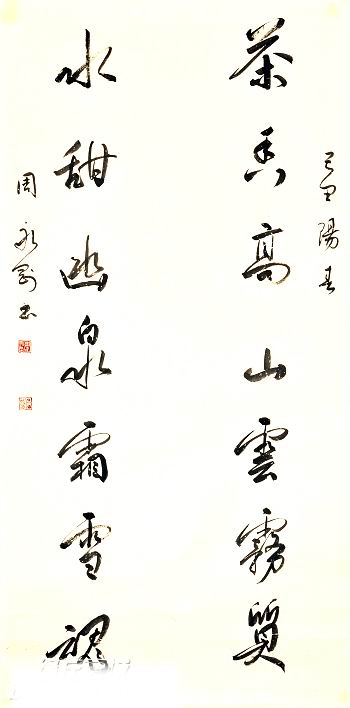 己丑陽春
茶香高山雲霧質
水甜幽泉霜雪魂
周永書